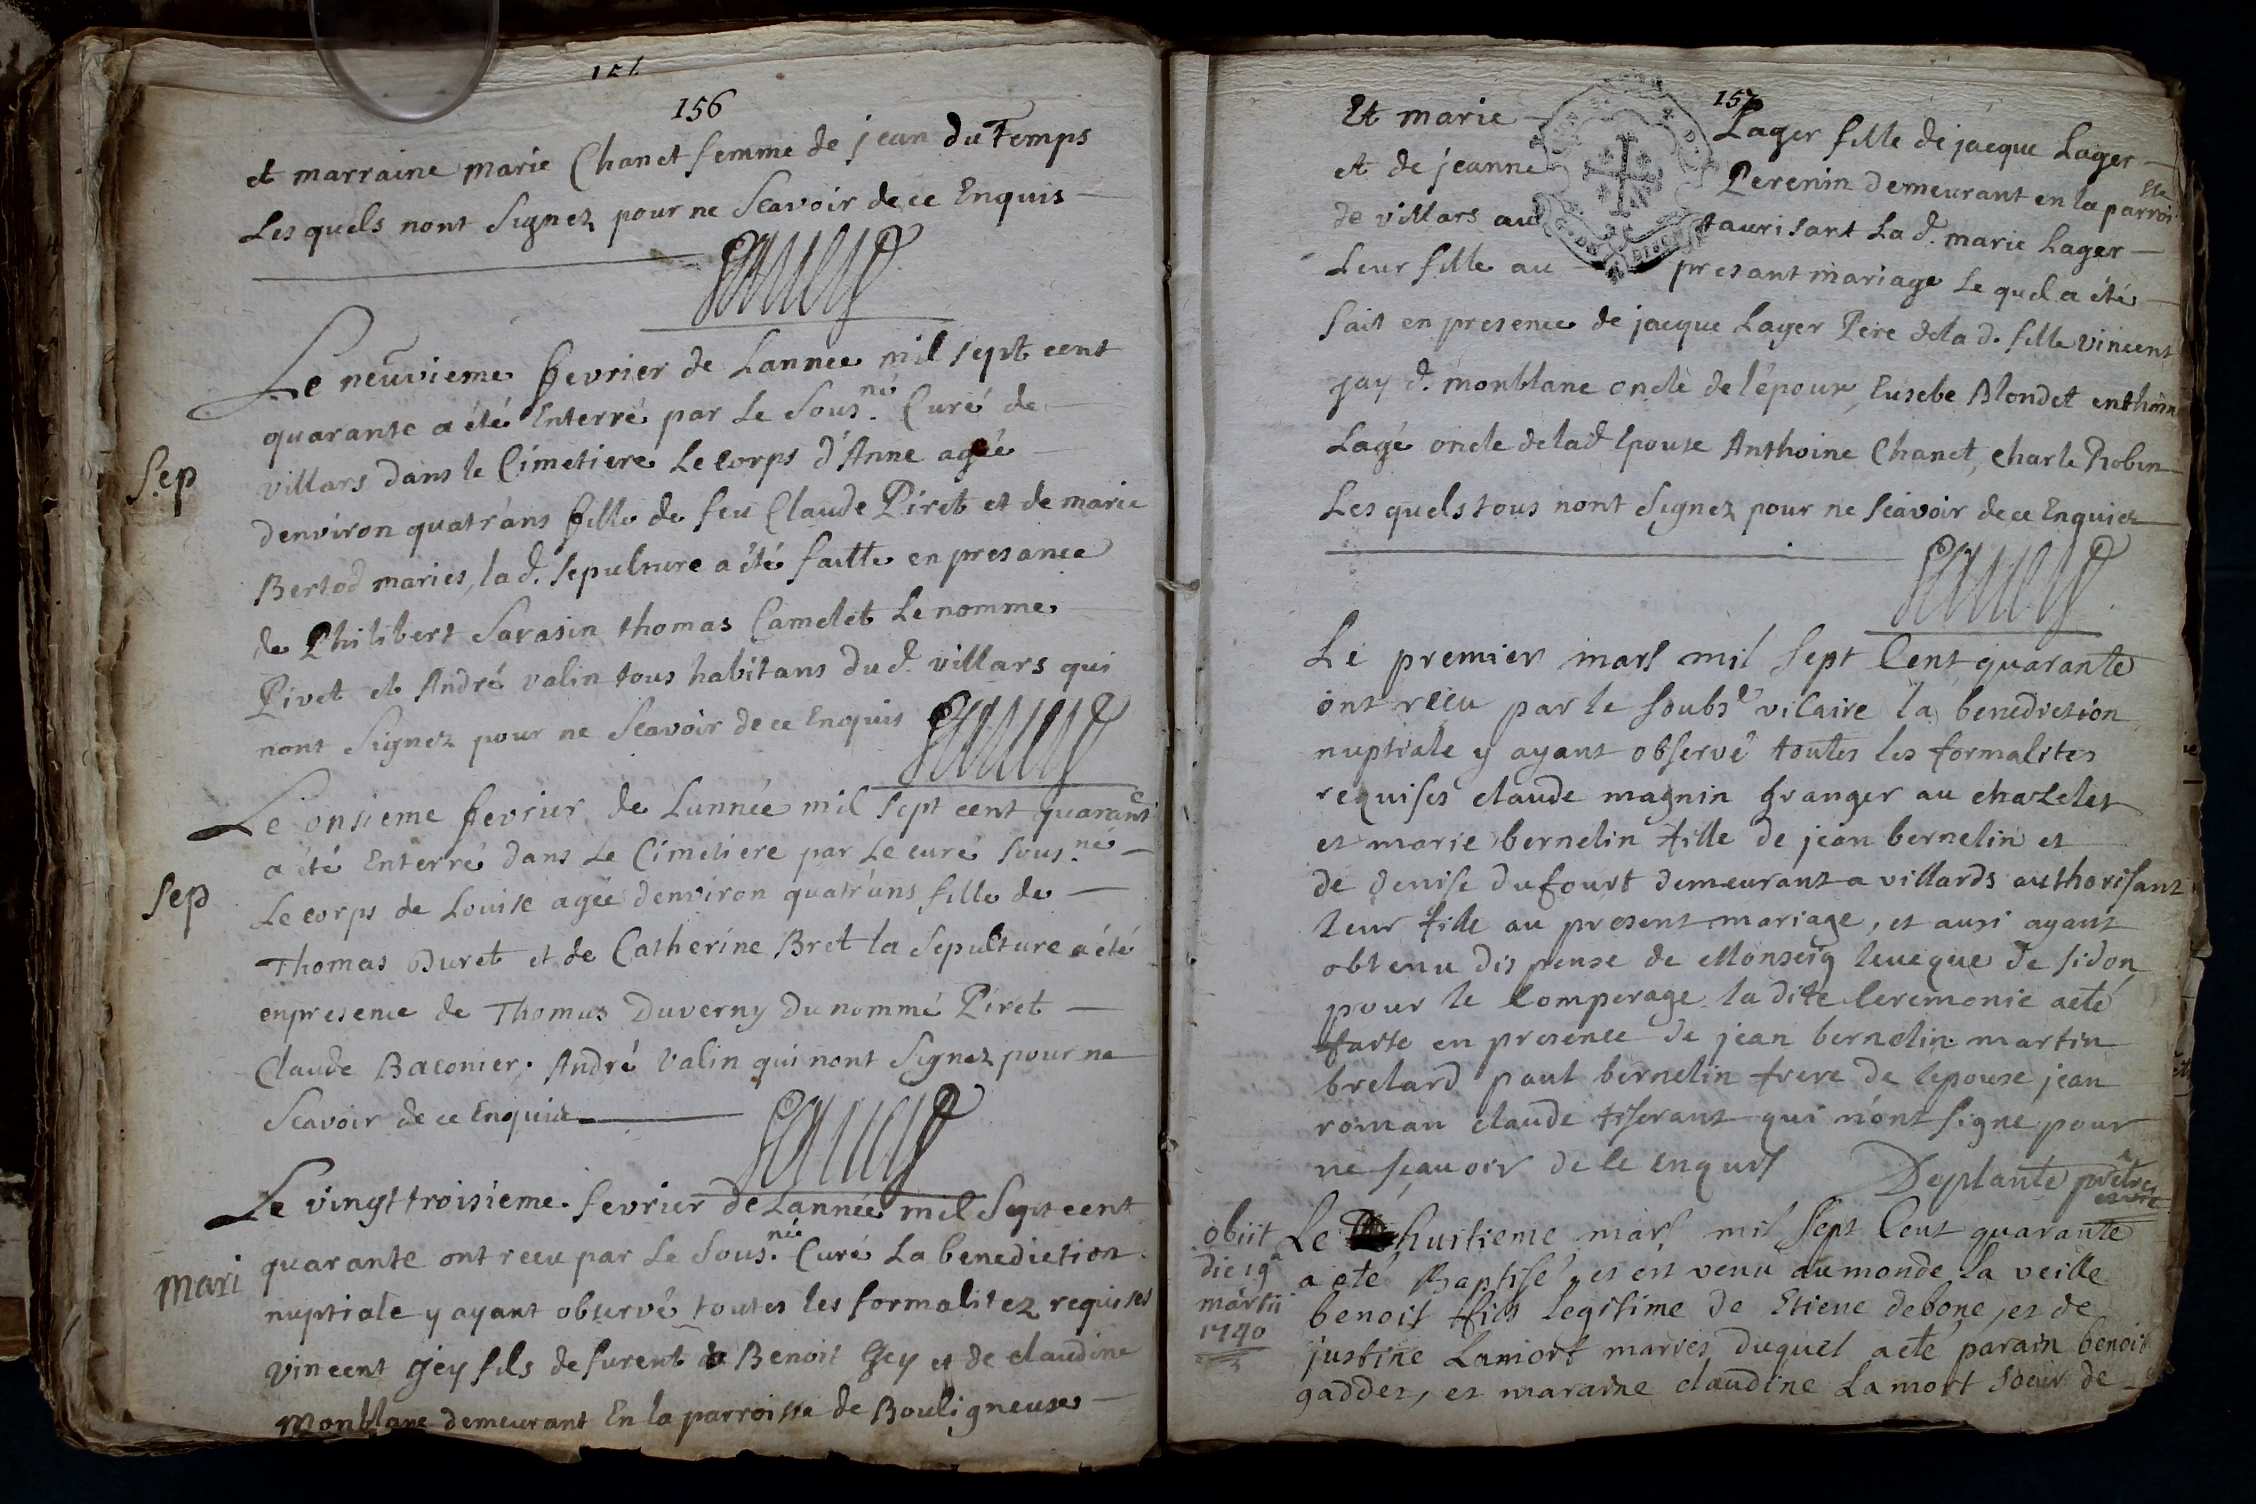 156
et marraine marie Chanet femme de jean du Temps
Les quels nont Signez pour ne Scavoir de ce Enquis
Le neuvieme fevrier de Lannee mil sept cent
quarante a été Enterré par Le Sous.né Curé de
villars dans le Cimetiere Le corps d'Anne agée
denviron quatr'ans fille de feu Claude Piret et de marie
Bertod maries, la d. sepulture a été faitte en presance
de Philibert Sarasin thomas Camelet Le nomme
Pivet et André valin tous habitans du d. villars qui
nont Signez pour ne Scavoir de ce Enquis
Sep
Le onsieme fevrier de Lannée mil sept cent quarante
a été Enterré dans Le Cimetiere par Le curé sous.né
Le corps de Louise agée denviron quatr'ans fille de
Thomas Duret et de Catherine Bret la Sepulture a été
en presence de Thomas Duverny du nommé Piret
Claude Baconier. André Valin qui nont Signez pour ne
Scavoir de ce Enquis
Sep
Le vingt troisieme fevrier de Lannée mil Sept cent
quarante ont recu par Le Sous.né Curé La benediction
nuptiale y ayant observé toutes les formalitez requises
vincent Gey fils de furent Benoit Gey et de claudine
Monblanc demeurant En la parroisse de Bouligneuse
Mari
157
Et marie Lager fille de jacque Lager
et de jeanne Perenin demeurant en la parroisse
de villars autaurisant La d. marie Lager
Leur fille au presant mariage Le quel a été
fait en presence de jacque Lager Pere de la d. fille vincent
jay d. monblanc oncle de l'époux, Eusebe Blondet enthoine
Lagé oncle de la d. Epouse Anthoine Chanet, charle Robin
Les quels tous nont Signez pour ne Scavoir de ce Enquiez
Le premier mars mil sept Cent quarante
ont recu par le soubs.é vicaire la benediction
nuptiale y ayant observé toutes les formalites
requises claude magnin granger au chatelet
et marie bernelin fille de jean bernelin et
de denise dufourt demeurant a villards authorisant
leur fille au present mariage, et ausi ayant
obtenu dispense de Monseig leveque de sidon
pour le Comperage la dite Ceremonie a eté
faite en presence de jean bernelin martin
brelard paul bernelin frere de l'epouse jean
roman claude tiserant qui n'ont signe pour
ne sçavoir de ce enquis Deplante prêtre
Le huitieme mars mil sept Cent quarante
a eté Baptisé, et est venu au monde la veille
benoit fils legitime de Etiene debone, et de
justine Lamort mariés duquel a eté parain benoit
gaddet, et maraine claudine Lamort soeur de
obiit
die 19a
martii
1740